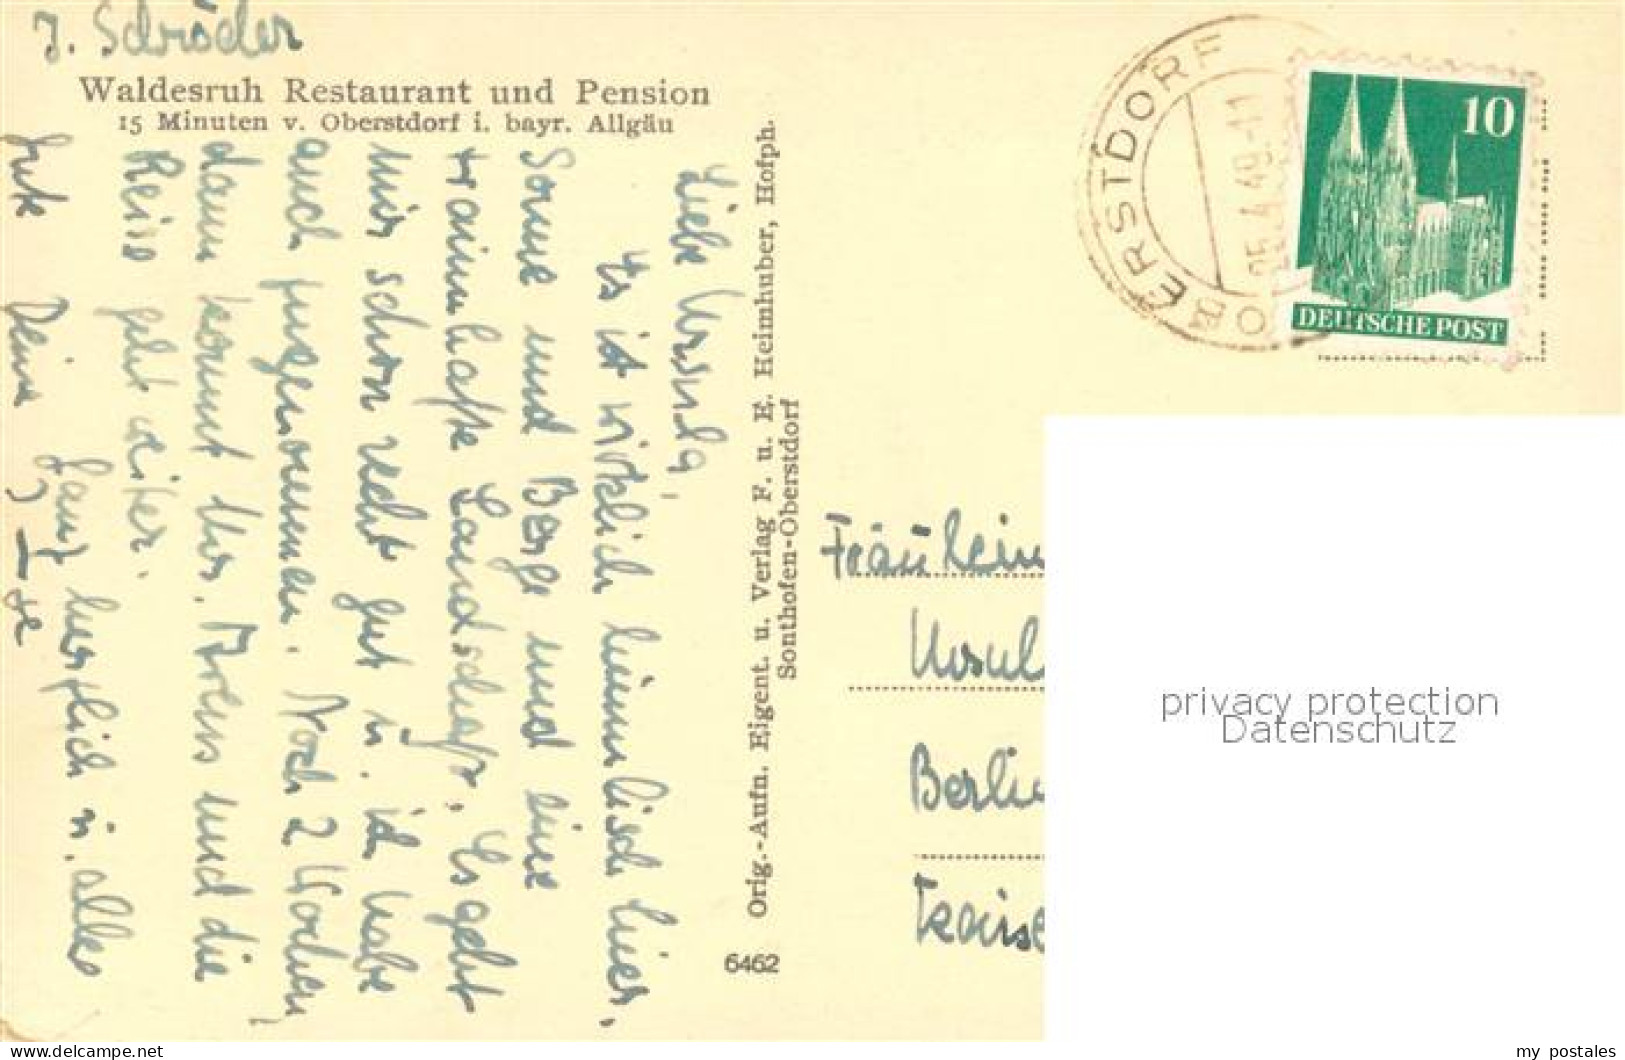 J. Schröder
Waldesruh Restaurant und Pension
15 Minuten v. Oberstdorf i. bayr. Allgäu
Liebe Ursula,
Es ist wirklich himmlisch hier,
Sonne und Berge und eine
traumhafte Landschaft, Es geht
mir schon recht gut u. ich habe
auch zugenommen. Noch 2 Wochen,
dann kommt Urs. und die
Reise geht weiter.
Ganz herzlich u. alles
Gute Deine Ilse
Orig.-Aufn. Eigent. u. Verlag F. u. E. Heimhuber, Hofph.
Sonthofen-Oberstdorf
6462
OBERSTDORF
25.4.49.-11
10
DEUTSCHE POST
Fräulein
Ursul
Berlin
Kaise
privacy protection
Datenschutz
delcampe.net
my_postales